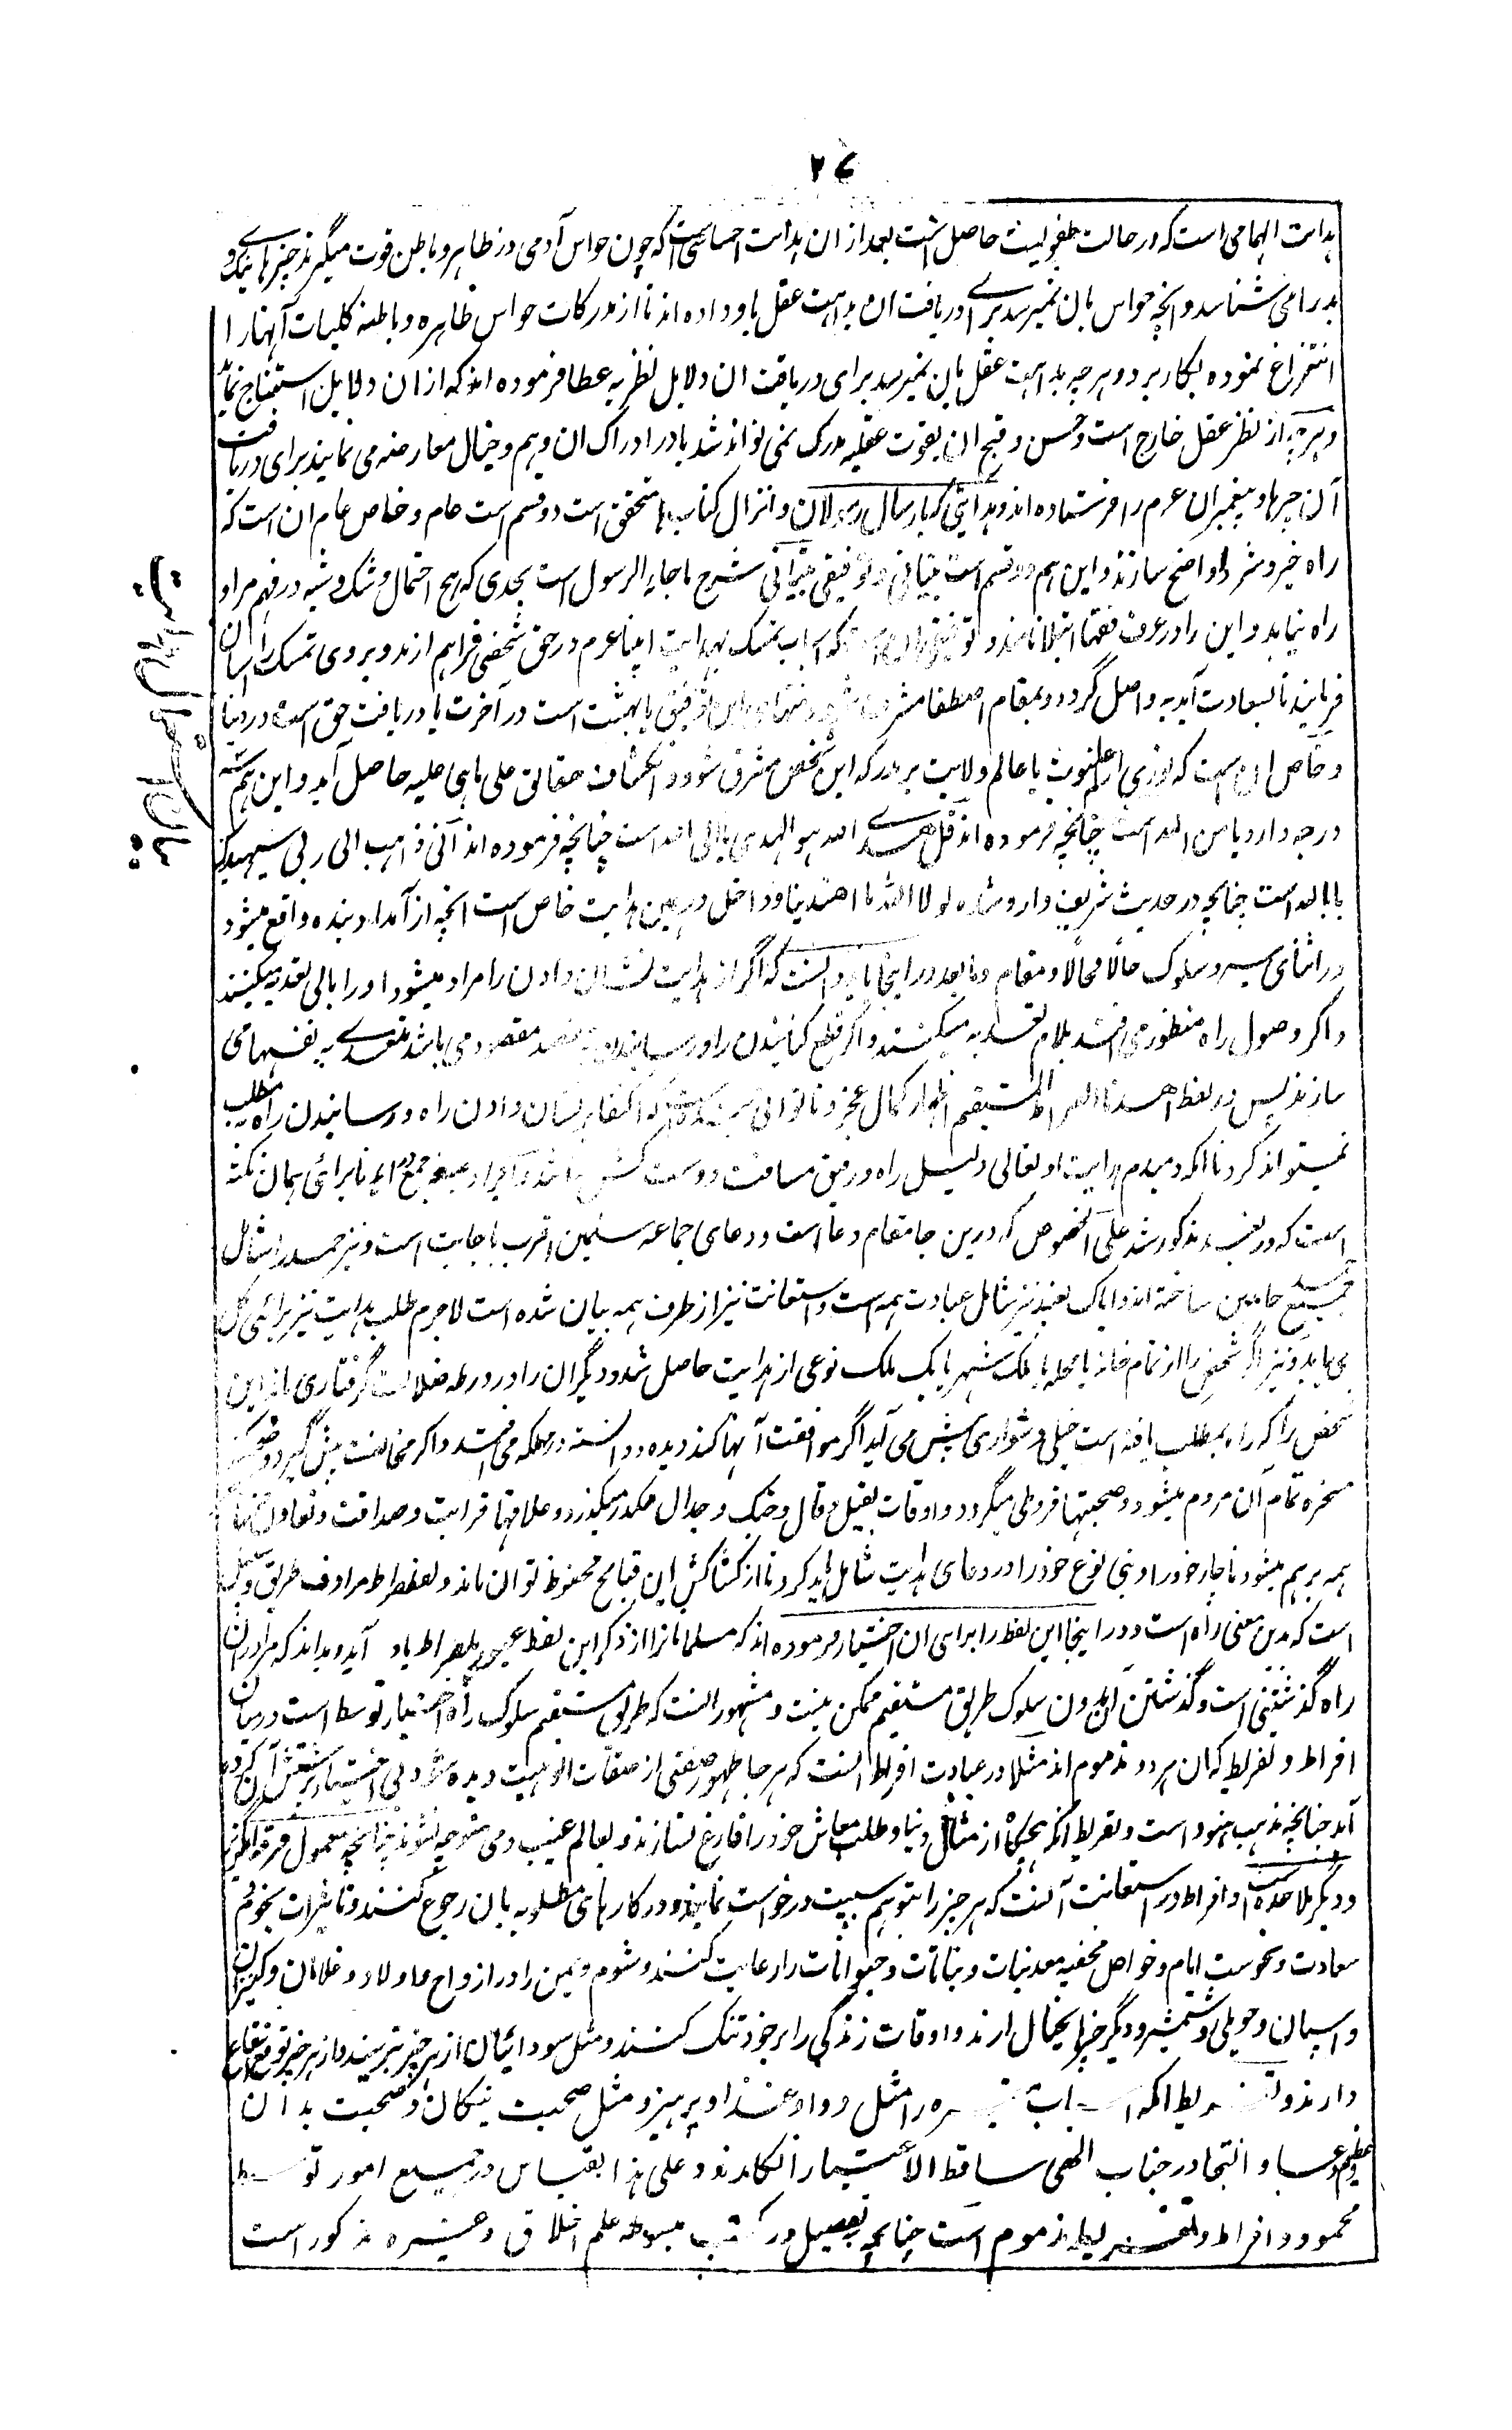 ۲۶
هدایت الهامی است که در حالت طفولیت حاصل است بعد از ان هدایت احساسی است که چون حواس آدمی در ظاهر و باطن قوت میگیرند چیزهای نیک و
بد را می شناسد و انچه حواس بان نمیرسد برای دریافت ان بداهت عقل باو داده اند تا از مدرکات حواس ظاهره و باطنه کلیات آنها را
انتزاع نموده بکار برد و هر چه بداهت عقل بان نمیرسد برای دریافت ان دلایل نظریه عطا فرموده اند که از ان دلایل استنتاج نماید
و هر چه از نظر عقل خارج است و حسن و قبح ان بقوت عقلیه مدرک نمی تواند شد یا در ادراک ان وهم و خیال معارضه می نمایند برای دریافت
آن چیزها و پیغمبران عرم را فرستاده اند و هدایتی که بارسال رسولان و انزال کتابها متحقق است دو قسم است عام و خاص عام ان است که
راه خیر و شر را واضح سازند و این هم دو قسم است بیانی و توفیقی بیانی شرح ما جاء به الرسول است بحدی که هیچ احتمال و شک و شبه در فهم مراد
راه نیابد و این را در عرف فقها ابتلا نامند و توفیقی ان است که اسباب تمسک بهدایت انبیا عرم در حق شخصی فراهم ارند و بر وی تمسک را اسان
فرمایند تا بسعادت ابدیه واصل گردد و بمقام اصطفا مشرف شود و منتهای این توفیق یا بهشت است در آخرت یا دریافت حق است در دنیا
و خاص ان است که نوری از عالم نبوت یا عالم ولایت بر مدرکه این شخص مشرق شود و انکشاف حقائق علی ما هی علیه حاصل آید و این هم سه
درجه دارد یا من الله است چنانچه فرموده اند قل ان هدی الله هو الهدی یا الی الله است چنانچه فرموده اند انی ذاهب الی ربی سیهدین
یا بالله است چنانچه در حدیث شریف وارد شده لولا الله ما اهتدینا و داخل در همین هدایت خاص است انچه از آمداد بنده واقع میشود
در اثنای سیر و سلوک حالا فحالا و مقام فمقاما بعد در اینجا باید دانست که اگر از هدایت نشان دادن را مراد میشود او را بالی تعدیه میکنند
و اگر وصول راه منظور می افتد بلام تعدیه میکنند و اگر قطع کنانیدن راه و رسانیدن بمقصد مقصود می باشد متعدی به نفسها می
سازند پس در لفظ اهدنا الصراط المستقیم اظهار کمال عجز و ناتوانی خود است که اکتفا بر نشان دادن راه و رسانیدن راه مطلب
نمیتواند کرد تا انکه دمبدم هدایت او تعالی دلیل راه و رفیق مسافت و دست کش ما نشود و ایراد صیغه جمع در اهدنا برائی همان نکته
است که در نعبد مذکور شد علی الخصوص که درین جا مقام دعا است و دعای جماعه مسلمین اقرب باجابت است و نیز حمد را شامل
جمیع حامدین ساخته اند و ایاک نعبد نیز شامل عبادت همه است و استعانت نیز از طرف همه بیان شده است لا جرم طلب هدایت نیز برائی کل
می باید و نیز اگر شخصی را از تمام خانه یا محله یا یک شهر یا یک ملک نوعی از هدایت حاصل شد و دیگران را در ورطه ضلالت گرفتاری ماند این
شخص را که راه بمطلب یافته است خیلی دشواری پیش می آید اگر موافقت آنها کند دیده و دانسته در مهلکه می افتد و اگر مخالفت پیش گیرد
مسخره تمام آن مردم میشود و صحبتها فروطی میگردد و اوقات بقیل و قال و جنگ و جدال مکدر میگذرد و علاقهای قرابت و صداقت و تعاون
همه برهم میشود ناچار خود را و بنی نوع خود را در دعای هدایت شامل باید کرد تا از کشاکش این قبایح محفوظ توان ماند و لفظ صراط مرادف طریق و سبیل
است که بدین معنی راه است و در اینجا این لفظ را برای ان اختیار فرموده اند که مسلمانان را از ذکر این لفظ عبور پل صراط یاد آید و بدانند که مرا در ان
راه گذشتنی است و گذشتن ازان بدون سلوک طریق مستقیم ممکن نیست و مشهور انست که طریق مستقیم سلوک راه اختیار توسط است درمیان
افراط و تفریط که ان هر دو مذموم اند مثلا در عبادت افراط انست که هر جا ظهور صفتی از صفات الوهیت دیده شود بی اختیار پرستش آن کرده
آید چنانچه مذهب هنود است و تفریط انکه هیچگاه از مشاغل دنیا و طلب معاش خود را فارغ نسازند و بعالم غیب دمی متوجه نشوند چنانچه معمول فرقه انگریز
و دیگر ملاحده است و افراط در استعانت آنست که هر چیز را بتوهم سببیت درخواست نمایند و در کارهای مطلوبه بان رجوع کنند و تاثیرات نجوم
سعادت و نحوست ایام و خواص مخفیه معدنیات و نباتات و حیوانات را رعایت کنند و شوم و یمن را در ازواج و اولاد و غلامان و کنیزان
و اسپان و حویلی و شمشیر و دیگر چیزها بخیال ارند و اوقات زندگی را بر خود تنگ کنند و مثل سودائیان از هر چیز بترسند و از هر چیز توقع انتفاع
دارند و تفریط انکه اسباب ظاهره را مثل دوا و غذا و پرهیز و مثل صحبت نیکان و صحبت بدان
و دعا و التجا در جناب الهی ساقط الاعتبار انگارند و علی هذا القیاس در جمیع امور توسط
محمود و افراط و تفریط مذموم است چنانچه بتفصیل در کتب مبسوطه علم اخلاق و غیره مذکور است